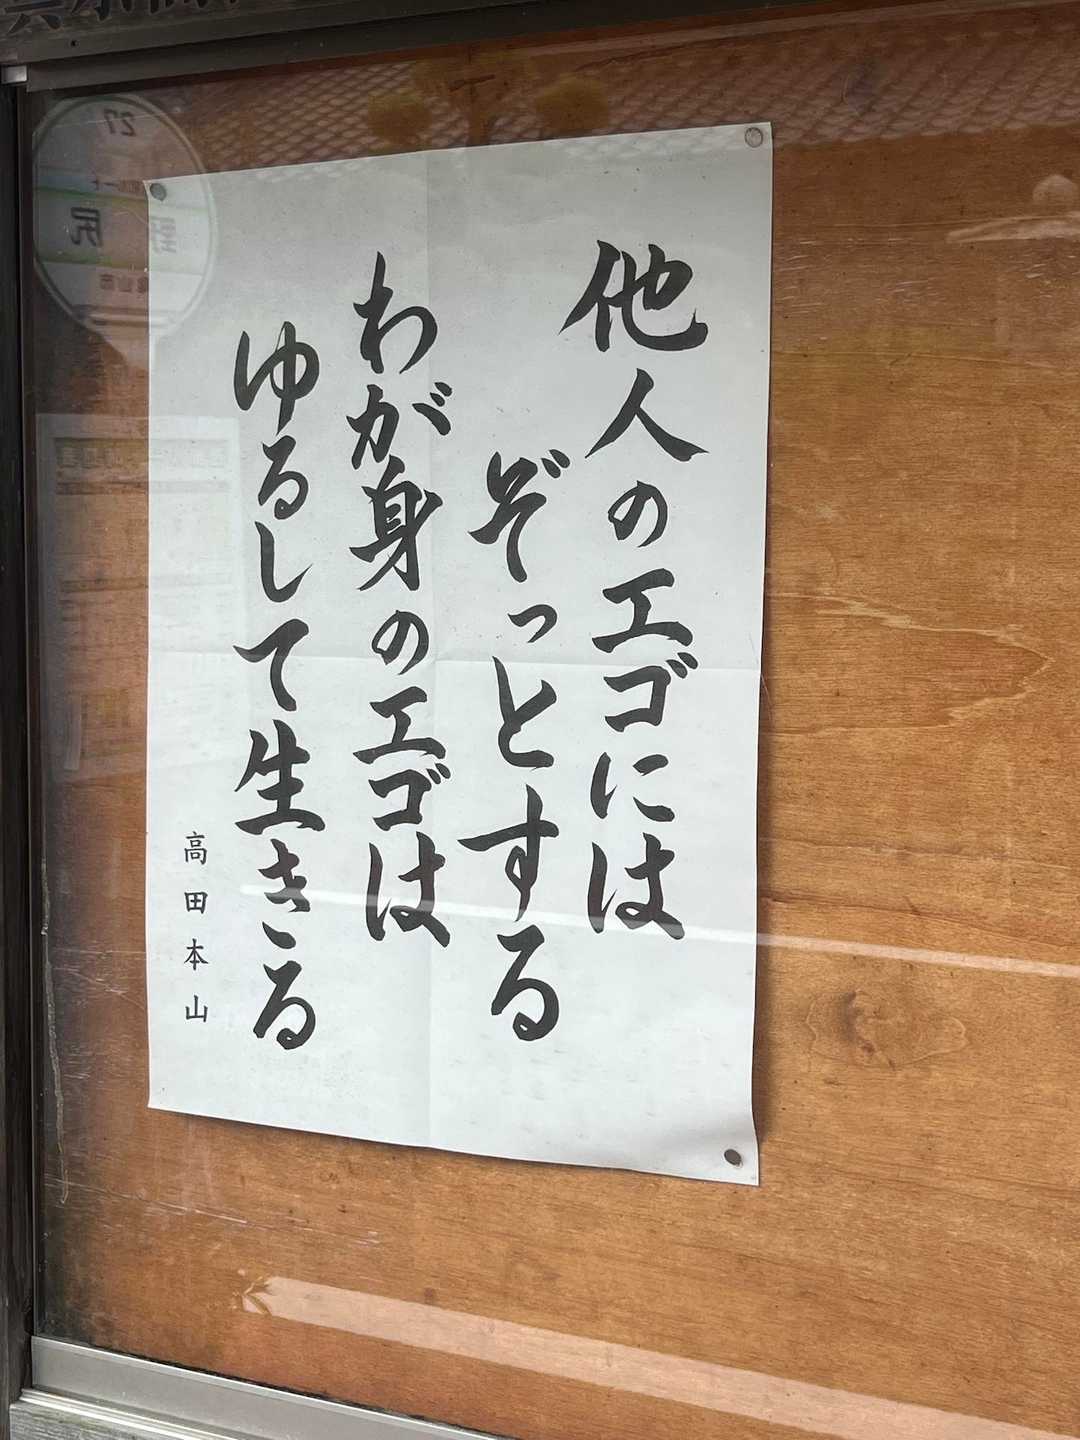 他人のエゴには
ぞっとする
わが身のエゴは
ゆるして生きる
高田本山
27
尻